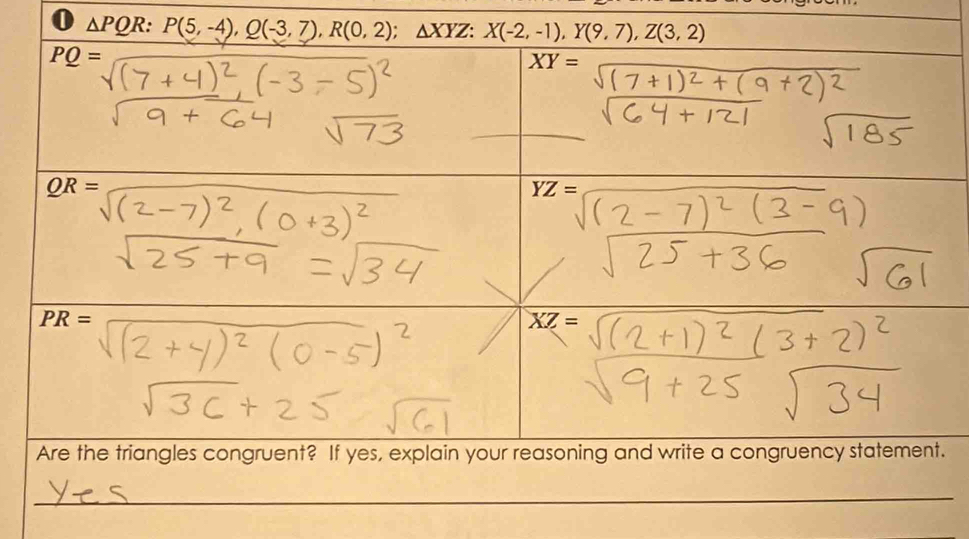 ❶ △PQR: P(5, -4), Q(-3, 7), R(0, 2); △XYZ: X(-2, -1), Y(9, 7), Z(3, 2)
PQ = √(7+4)², (-3-5)²
√9 + 64 √73
XY = √(7+1)² + (9+2)²
√64 + 121 √185
QR = √(2-7)², (0+3)²
√25 + 9 = √34
YZ = √(2-7)² (3-9)
√25 + 36 √61
PR = √(2+4)² (0-5)²
√36 + 25 √61
XZ = √(2+1)² (3+2)²
√9 + 25 √34
Are the triangles congruent? If yes, explain your reasoning and write a congruency statement.
Yes